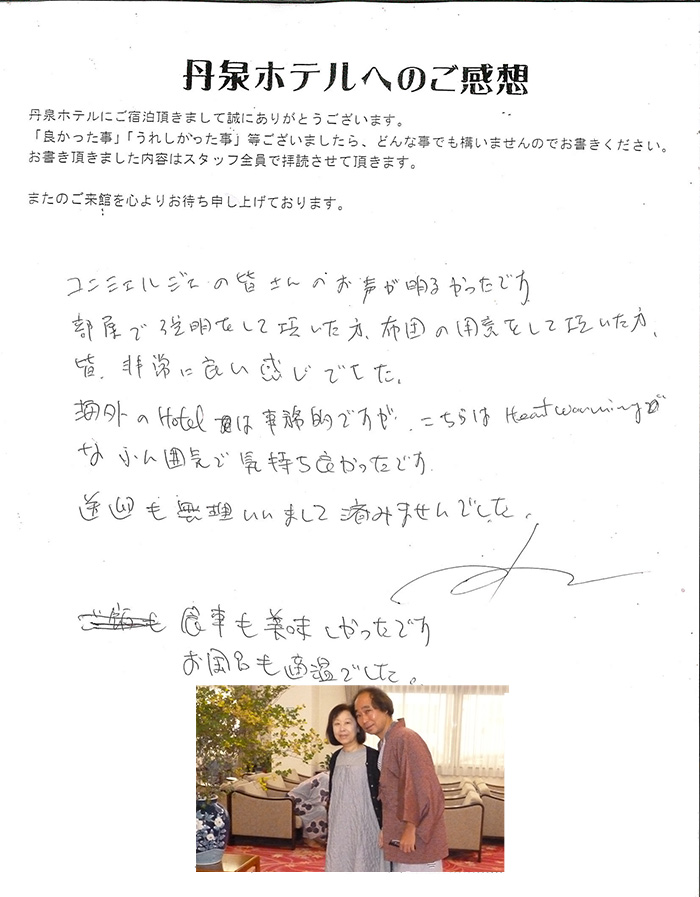 丹泉ホテルへのご感想
丹泉ホテルにご宿泊頂きまして誠にありがとうございます。
「良かった事」「うれしかった事」等ございましたら、どんな事でも構いませんのでお書きください。
お書き頂きました内容はスタッフ全員で拝読させて頂きます。
またのご来館を心よりお待ち申し上げております。
コンシェルジェの皆さんのお声が明るかったです
部屋で説明をして頂いた方、布団の用意をして頂いた方、
皆、非常に良い感じでした。
海外のHotelは事務的ですが、こちらはHeatwarming
なふん囲気で気持ち良かったです
送迎も無理いいまして済みませんでした。
ご飯も 食事も美味しかったです
お風呂も適温でした。